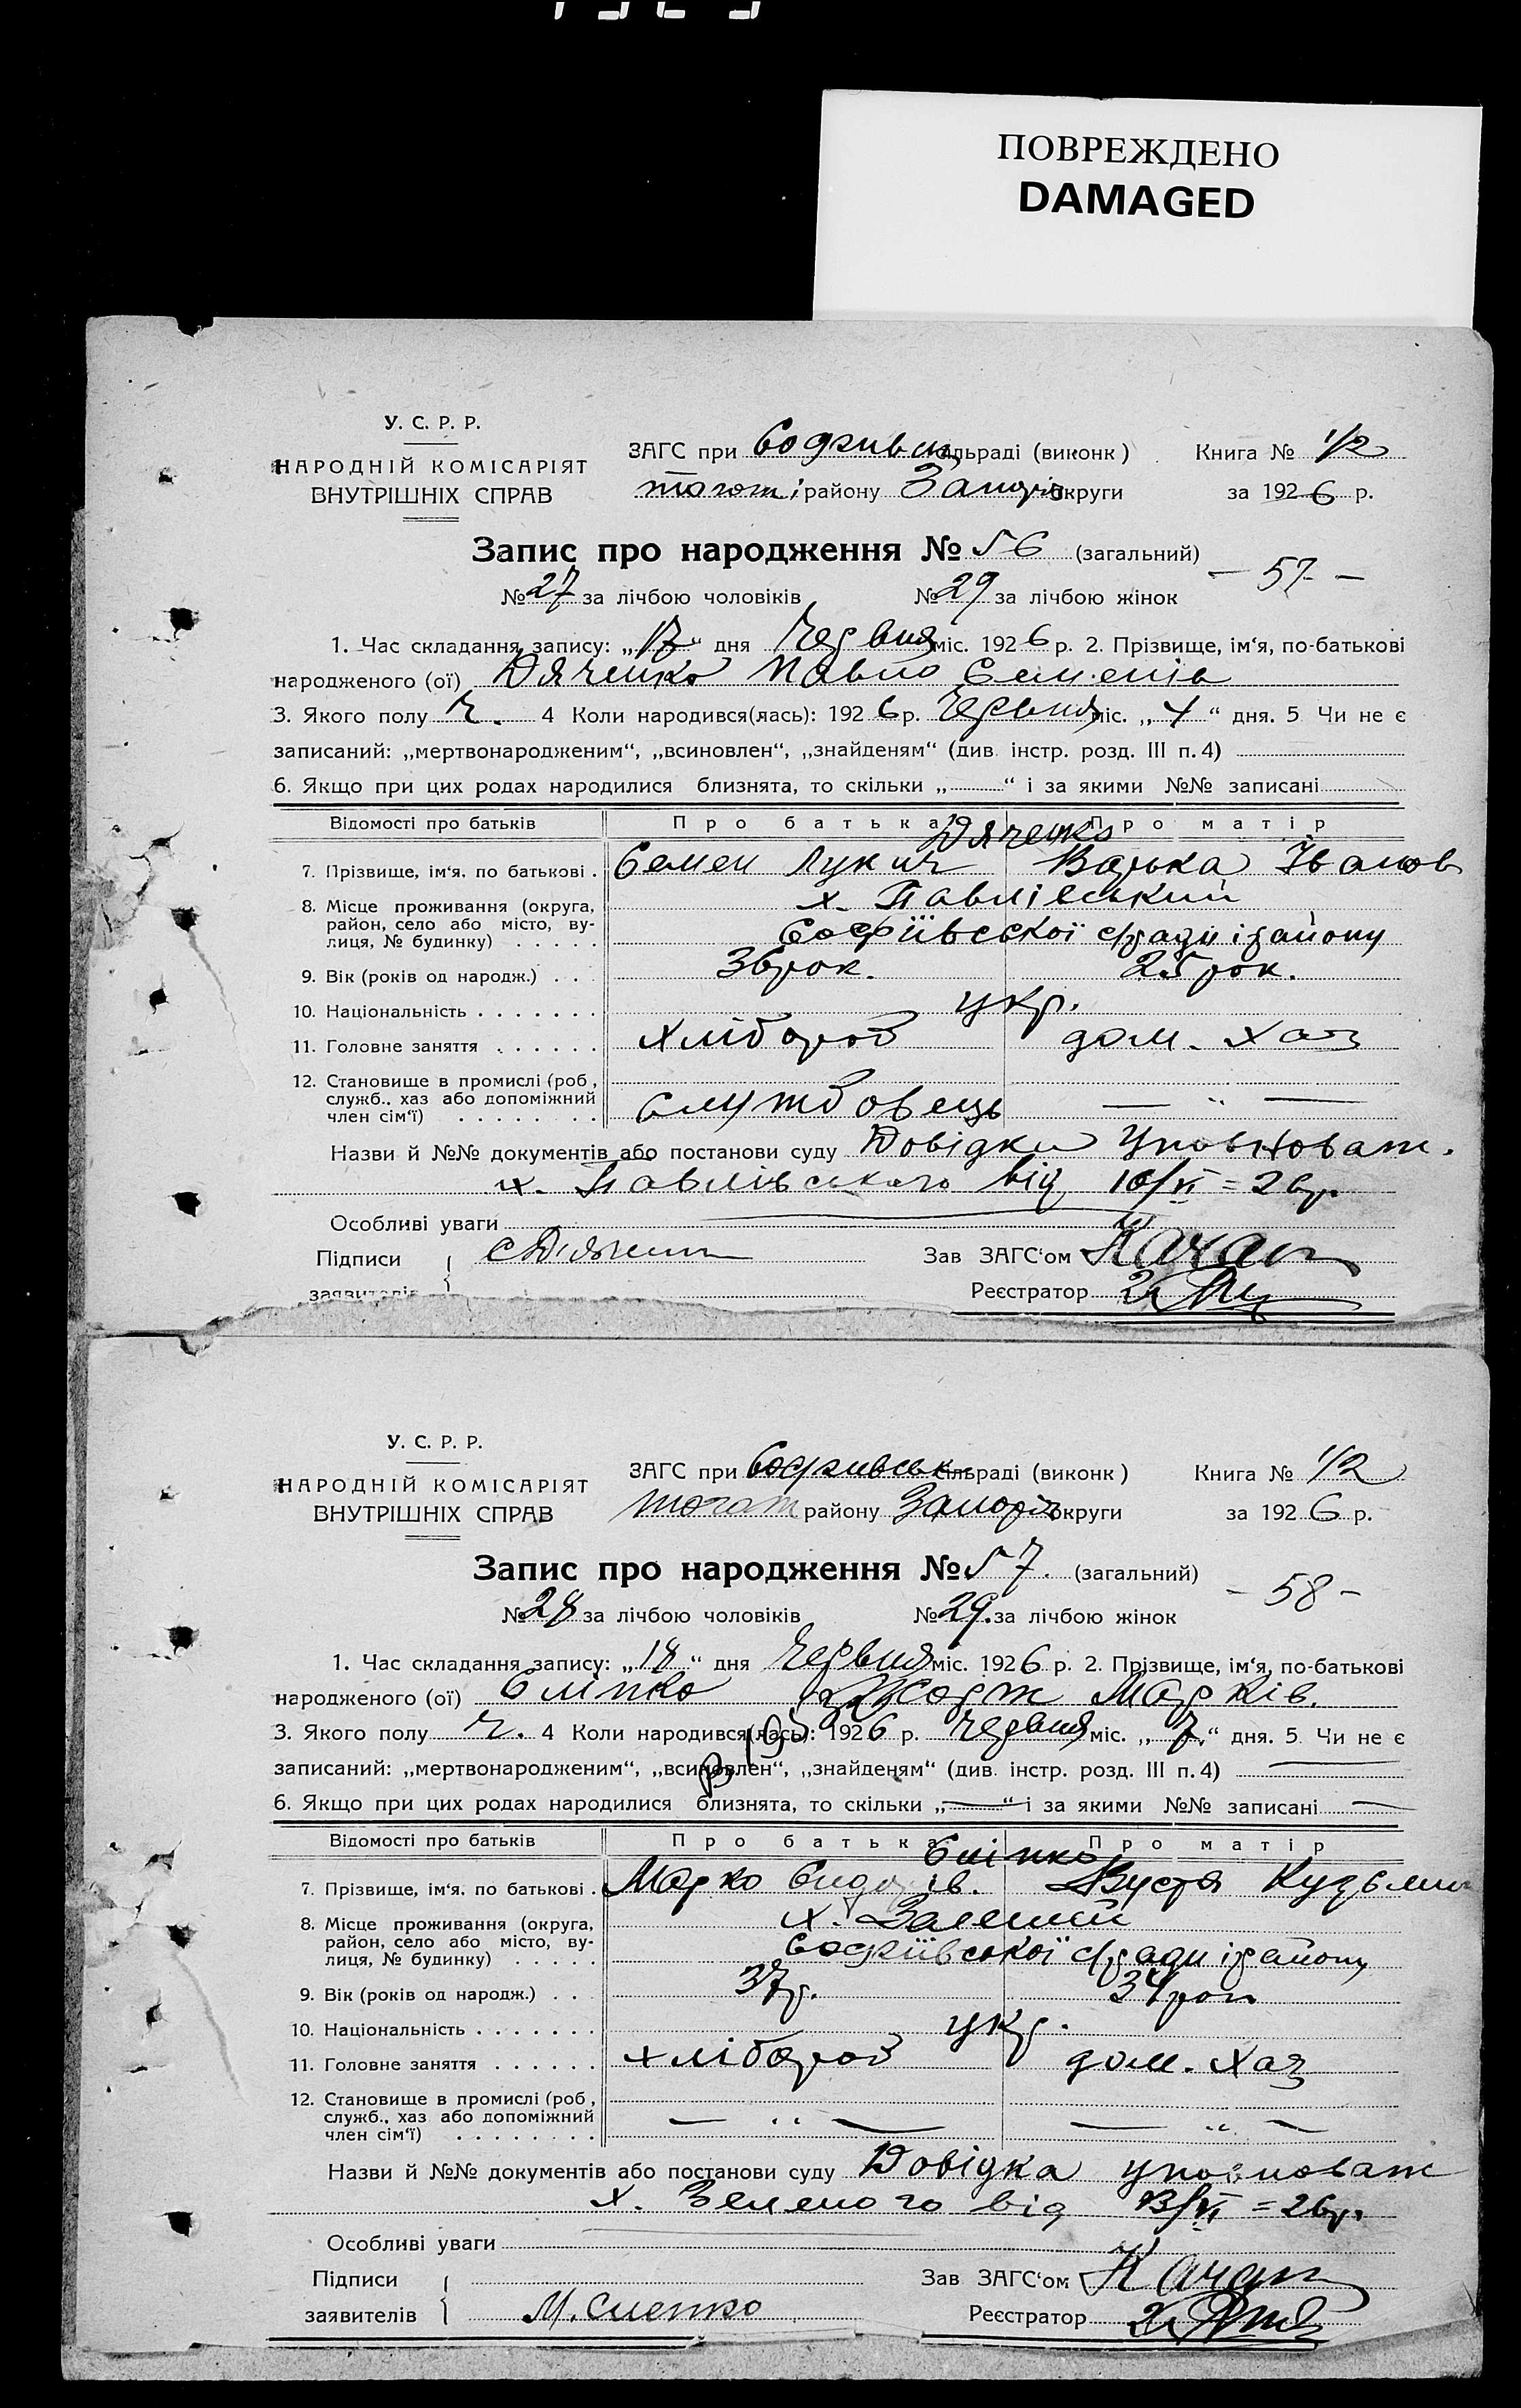 ПОВРЕЖДЕНО
DAMAGED
У. С. Р. Р.
НАРОДНІЙ КОМІСАРІЯТ
ВНУТРІШНІХ СПРАВ
ЗАГС при Софиивск сільраді (виконк)
району Запоріз округи
Книга № 1/2
за 1926 р.
Запис про народження № 56 (загальний)
— 57 —
№ 27 за лічбою чоловіків № 29 за лічбою жінок
1. Час складання запису: „17“ дня Червня міс. 1926 р. 2. Прізвище, ім‘я, по-батькові
народженого (ої) Дяченко Павло Семенів
3. Якого полу Ч. 4 Коли народився(лась): 1926 р. Червня міс. „4“ дня. 5 Чи не є
записаний: „мертвонародженим“, „всиновлен“, „знайденям“ (див. інстр. розд. III п. 4)
6. Якщо при цих родах народилися близнята, то скільки „ “ і за якими №№ записані
Відомості про батьків Про батька Про матір
Дяченко
7. Прізвище, ім‘я, по батькові . Семен Лукич Варька Іванов
8. Місце проживання (округа, х. Павлівський
район, село або місто, ву-
лиця, № будинку) . . . . . Софіївської с/ради і району
9. Вік (років од народж.) . . . 36 рок. 25 рок.
10. Національність . . . . . . . укр.
11. Головне заняття . . . . . . хлібороб дом. хаз
12. Становище в промислі (роб.,
служб., хаз або допоміжний
член сім‘ї) . . . . . . . . службовець — „ —
Назви й №№ документів або постанови суду Довідки Уповноваж.
х. Павлівського від 10/VI = 26 р.
Особливі уваги
Підписи
заявителів
Зав ЗАГС‘ом Качан
Реєстратор
У. С. Р. Р.
НАРОДНІЙ КОМІСАРІЯТ
ВНУТРІШНІХ СПРАВ
ЗАГС при Софиивськ сільраді (виконк)
району Запоріз округи
Книга № 1/2
за 1926 р.
Запис про народження № 57. (загальний)
— 58 —
№ 28 за лічбою чоловіків № 29. за лічбою жінок
1. Час складання запису: „18“ дня Червня міс. 1926 р. 2. Прізвище, ім‘я, по-батькові
народженого (ої) Сліпко Жорж Марків.
3. Якого полу Ч. 4 Коли народився(лась): 1926 р. Червня міс. „7.“ дня. 5 Чи не є
записаний: „мертвонародженим“, „всиновлен“, „знайденям“ (див. інстр. розд. III п. 4) —
6. Якщо при цих родах народилися близнята, то скільки „—“ і за якими №№ записані —
Відомості про батьків Про батька Про матір
Сліпко
7. Прізвище, ім‘я, по батькові . Марко Сидорів. Вустя Кузьмин
8. Місце проживання (округа, х. Зелений
район, село або місто, ву-
лиця, № будинку) . . . . . Софіївської с/ради і району
9. Вік (років од народж.) . . . 37 р. 34 рок
10. Національність . . . . . . . укр.
11. Головне заняття . . . . . . хлібороб дом. хаз
12. Становище в промислі (роб.,
служб., хаз або допоміжний
член сім‘ї) . . . . . . . . — „ — — „ —
Назви й №№ документів або постанови суду Довідка уповноваж
х. Зеленого від 13/VI = 26 р.
Особливі уваги
Підписи
заявителів М. Слепко
Зав ЗАГС‘ом Качан
Реєстратор